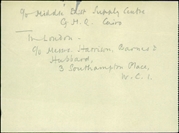 c/o Middle East Supply Centre
G.H.Q. Cairo
In London -
c/o Messrs Harrison, Barnes &
Hubbard,
3 Southampton Place,
W.C.1.